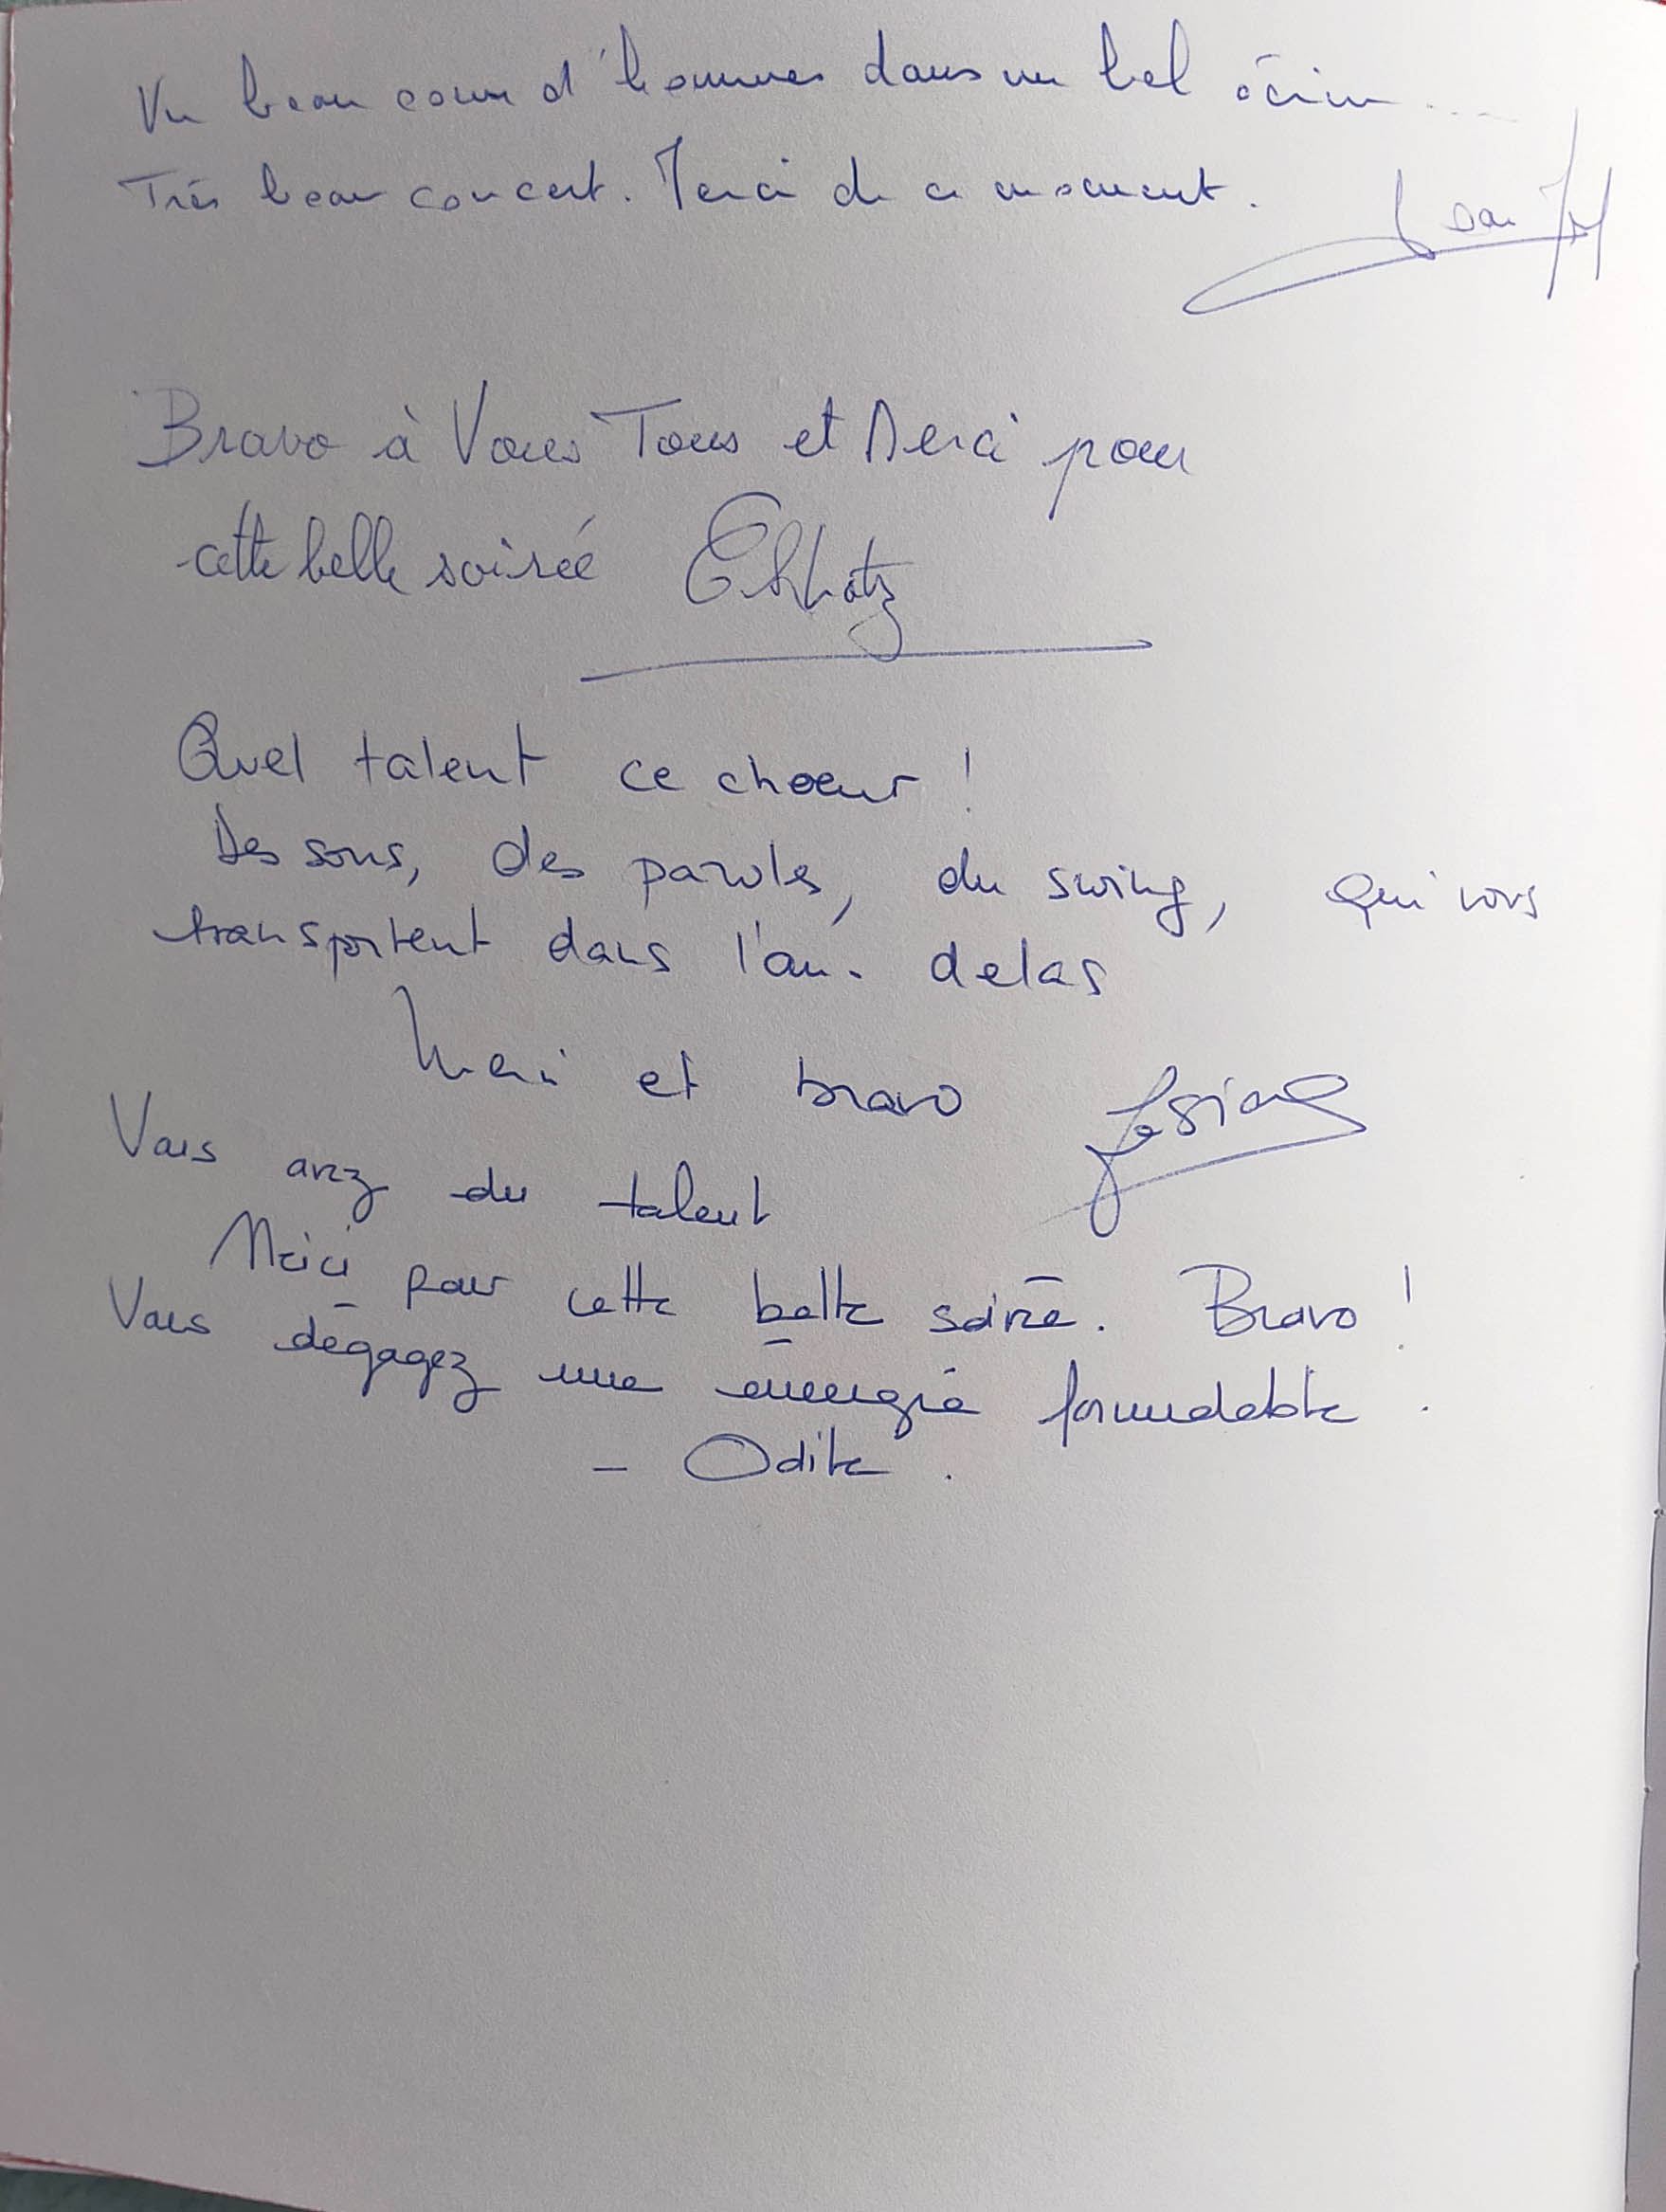 Un beau cœur d'hommes dans un bel écrin ...
Très beau concert. Merci de ce moment.
Bravo à Vous Tous et Merci pour
cette belle soirée
Quel talent ce choeur !
Des sons, des paroles, du swing, qui vous
transportent dans l'au-delas
Merci et bravo
Vous avez du talent
Merci pour cette belle soirée. Bravo !
Vous dégagez une énergie formidable.
- Odile.